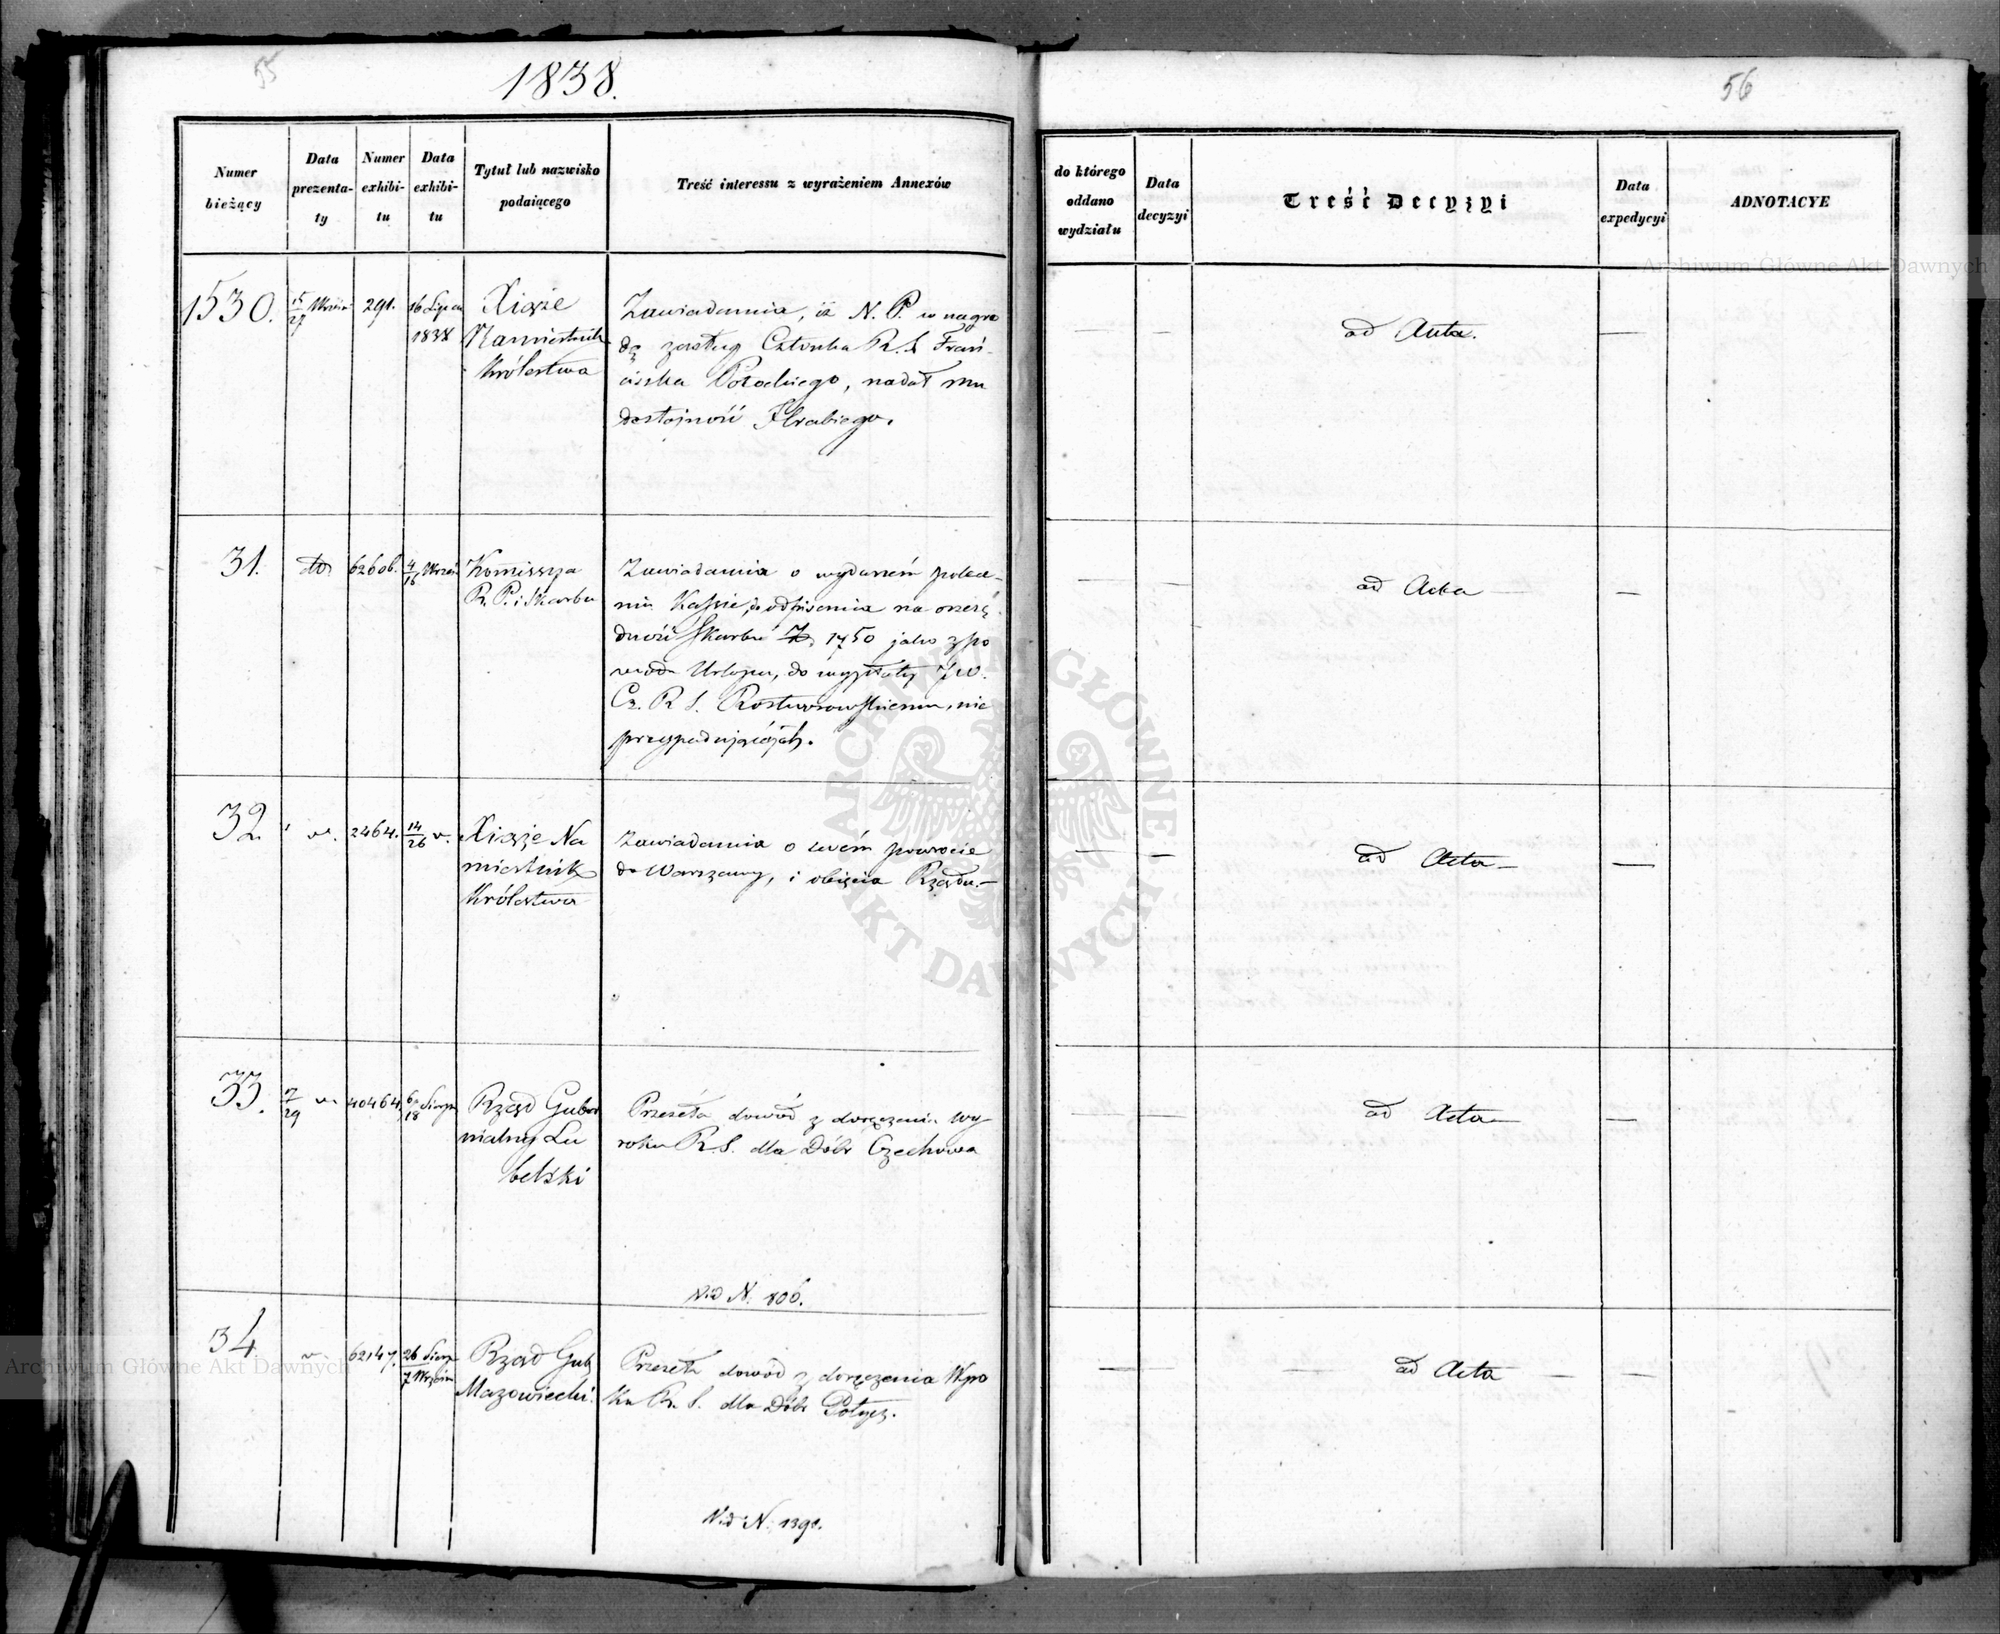 55
1838.
Numer bieżący
Data prezenta-ty
Numer exhibi-tu
Data exhibi-tu
Tytuł lub nazwisko podaiącego
Treść interessu z wyrażeniem Annexów
1530.
15/27 Wrześ
291.
16 Lipca
1838
Xiąże
Namiestnik
Królestwa
Zawiadamia, iż N. P. w nagro
dę zasług Członka R. S. Fran-
ciszka Potockiego, nadał mu
dostojność Hrabiego.
31.
dto
62606.
4/16 Wrześ
Komissya
R. P. i Skarbu
Zawiadamia o wydaniem polece-
niu Kassie, do odpisania na oszczę
dność Skarbu 1750 jako z po
wodu Urlopu, do wypłaty JW.
Cz. R. S. Rostworowskiemu, nie
przypadających.
32.
2464.
14/26
Xiąże Na
miestnik
Królestwa
Zawiadamia o swém powrocie
do Warszawy, i obięcia Rządu.—
33.
29
40464.
6/18 Sierp
Rząd Guber
nialny Lu
belski
Przeseła dowód z doręczenia Wy
roku R. S. dla Dóbr Czechowa
Vid N. 806.
34.
62147.
26 Sierp
7 Wrześn
Rząd Gub
Mazowiecki.
Przeseła dowód z doręczenia Wyro
ku R. S. dla Dóbr
Vid N. 1390.
56
do którego oddano wydziału
Data decyzyi
Treść Decyzyi
Data expedycyi
ADNOTACYE
ad Acta.
ad Acta
ad Acta
ad Acta
ad Acta
Archiwum Główne Akt Dawnych
Archiwum Główne Akt Dawnych
ARCHIWUM GŁÓWNE AKT DAWNYCH